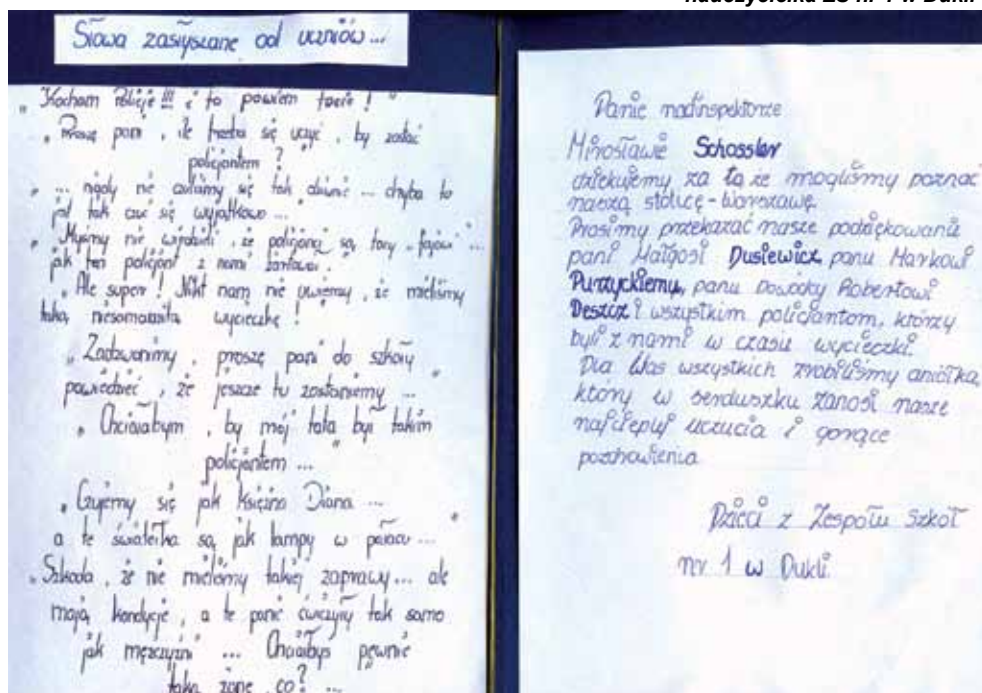 nauczycielka ZS nr 1 w Dukli
Słowa zasłyszane od uczniów...
„Kocham Policję !!! i to powiem tacie !"
„Proszę pani, ile trzeba się uczyć, by zostać
policjantem ?"
„... nigdy nie czuliśmy się tak dziwnie ... chyba to
jest tak czuć się wyjątkowo ..."
„Myśmy nie wiedzieli, że policjanci są tacy „fajowi" ...
jak ten policjant z nami żartował."
„Ale super ! Nikt nam nie uwierzy, że mieliśmy
taką niesamowitą wycieczkę !
„Zadzwonimy, proszę pani do szkoły
powiedzieć, że jeszcze tu zostaniemy ..."
„Chciałabym, by mój tata był takim
policjantem ..."
„Czujemy się jak Księżna Diana ...
a te światełka są jak lampy w pałacu ..."
„Szkoda, że nie mieliśmy takiej zaprawy ... ale
mają kondycję, a te panie ćwiczyły tak samo
jak mężczyźni ... Chciałbyś pewnie
taką żonę, co? ...
Panie nadinspektorze
Mirosławie Schossler
dziękujemy za to że mogliśmy poznać
naszą stolicę - Warszawę.
Prosimy przekazać nasze podziękowania
pani Małgosi Dusiewicz, panu Markowi
Purzyckiemu, panu Dowódcy Robertowi
Deszcz i wszystkim policjantom, którzy
byli z nami w czasie wycieczki.
Dla Was wszystkich zrobiliśmy aniołka,
który w serduszku zanosi nasze
najcieplej uczucia i gorące
pozdrowienia
Dzieci z Zespołu Szkół
nr 1 w Dukli.